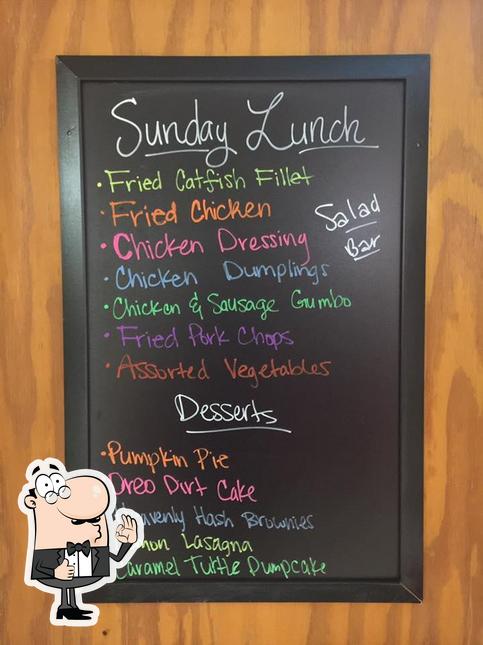 Sunday Lunch
• Fried Catfish Fillet
• Fried Chicken
Salad
Bar
• Chicken Dressing
• Chicken Dumplings
• Chicken & Sausage Gumbo
• Fried Pork Chops
• Assorted Vegetables
Desserts
• Pumpkin Pie
Oreo Dirt Cake
Hash Brownies
Lasagna
Caramel Turtle Dumpcake